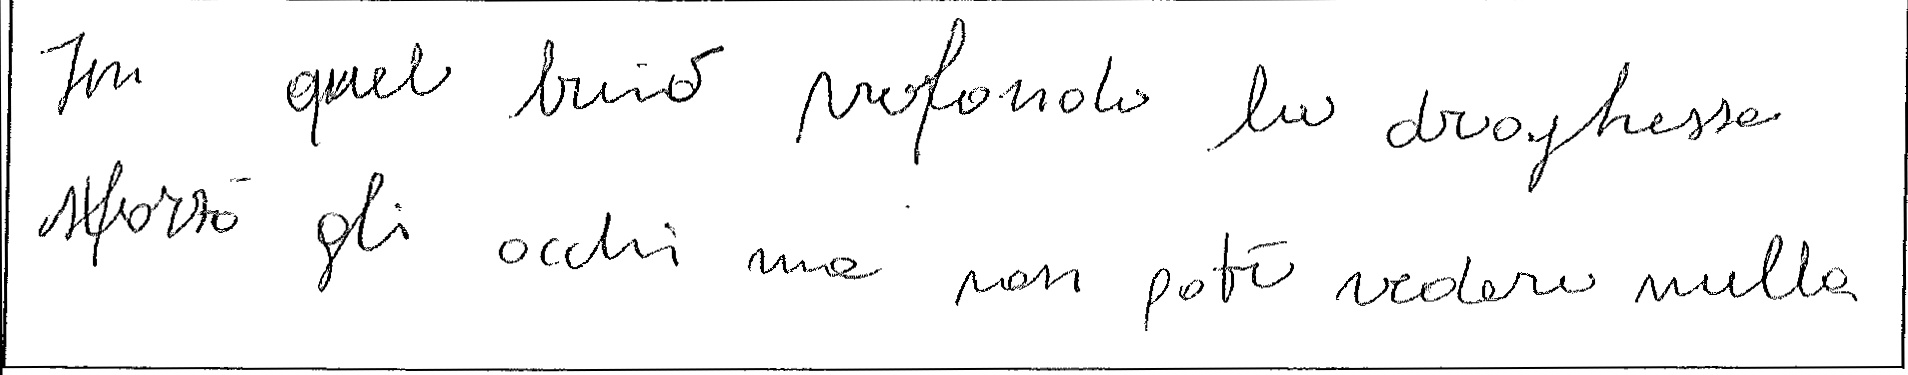 In quel buiō profondo la draghessa
sforzō gli occhi ma non potē vedere nulla